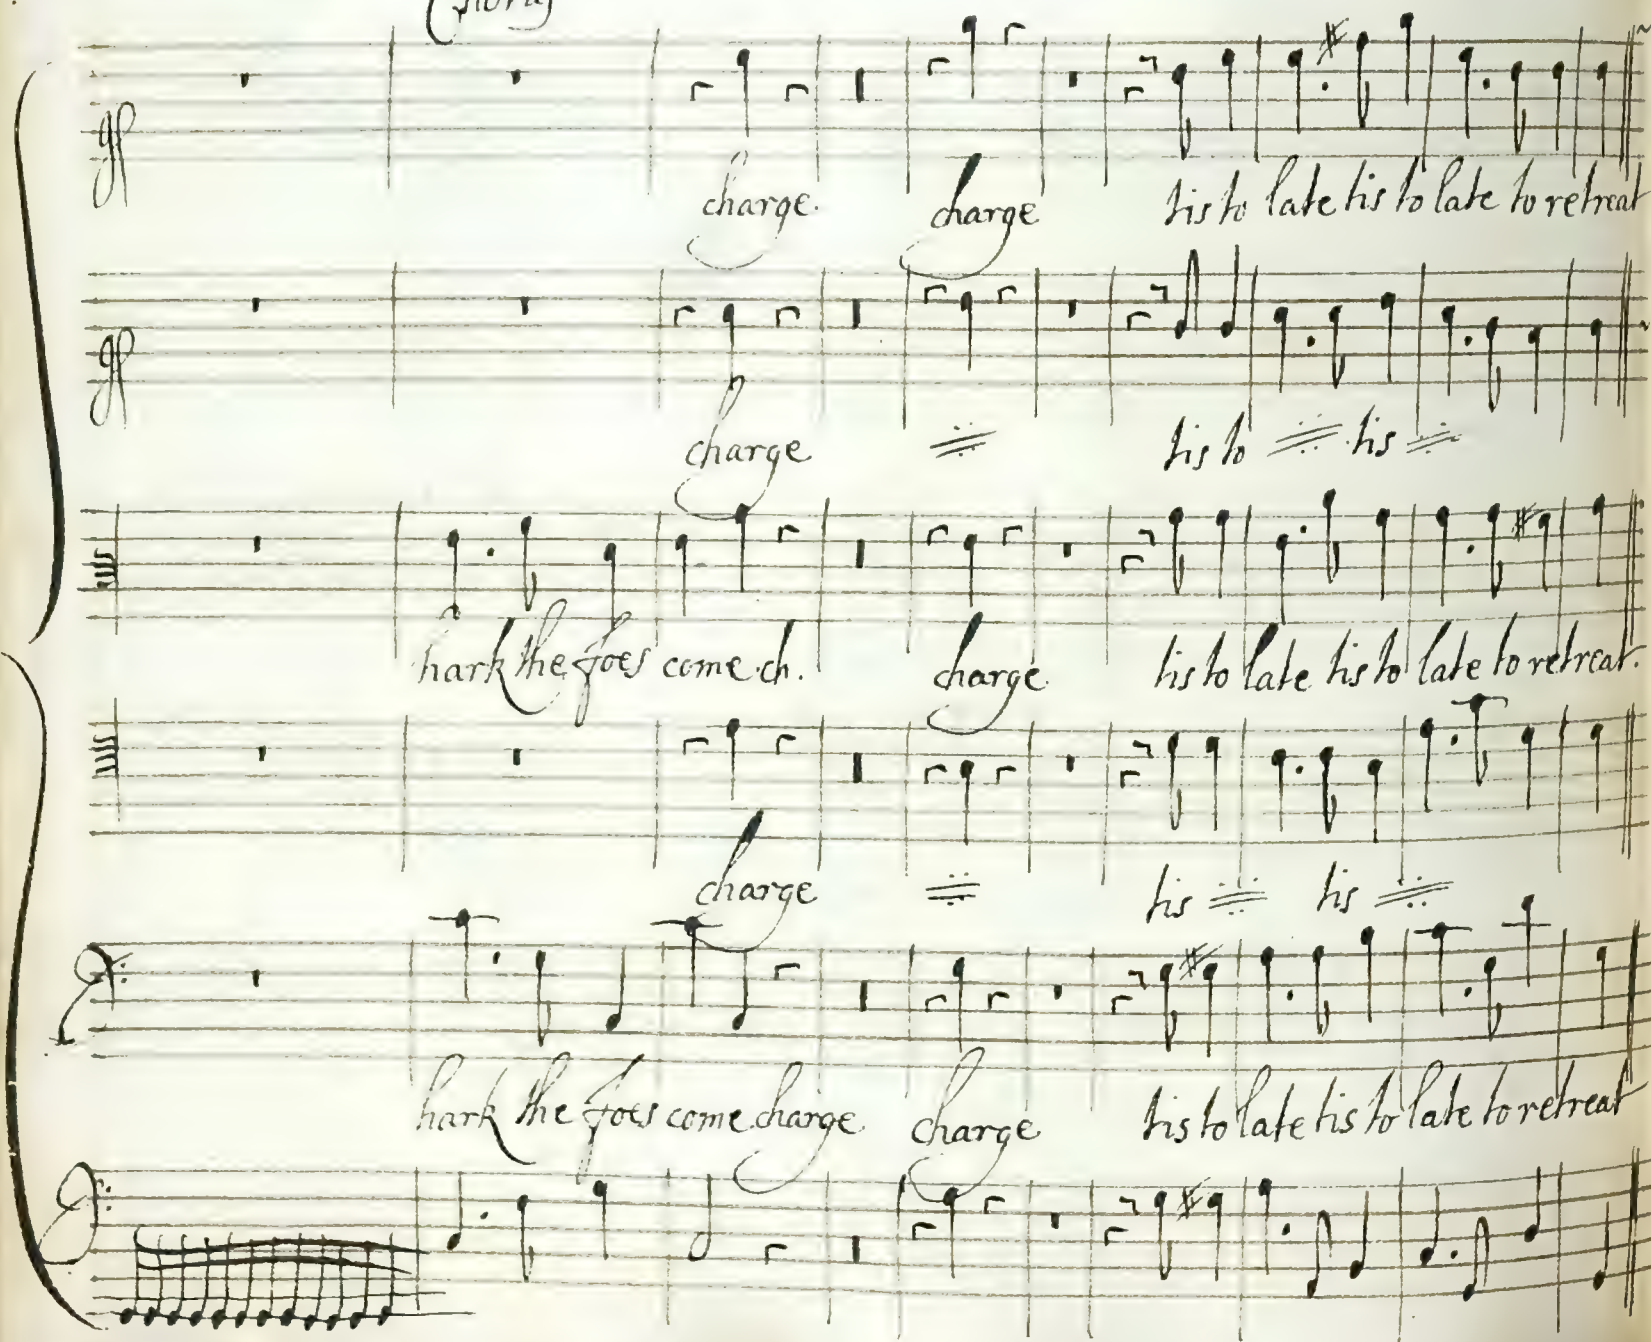 Chorus
charge. charge tis to late tis to late to retreat
charge tis to tis
hark the foes come ch. charge. tis to late tis to late to retreat.
charge tis tis
hark the foes come charge charge tis to late tis to late to retreat